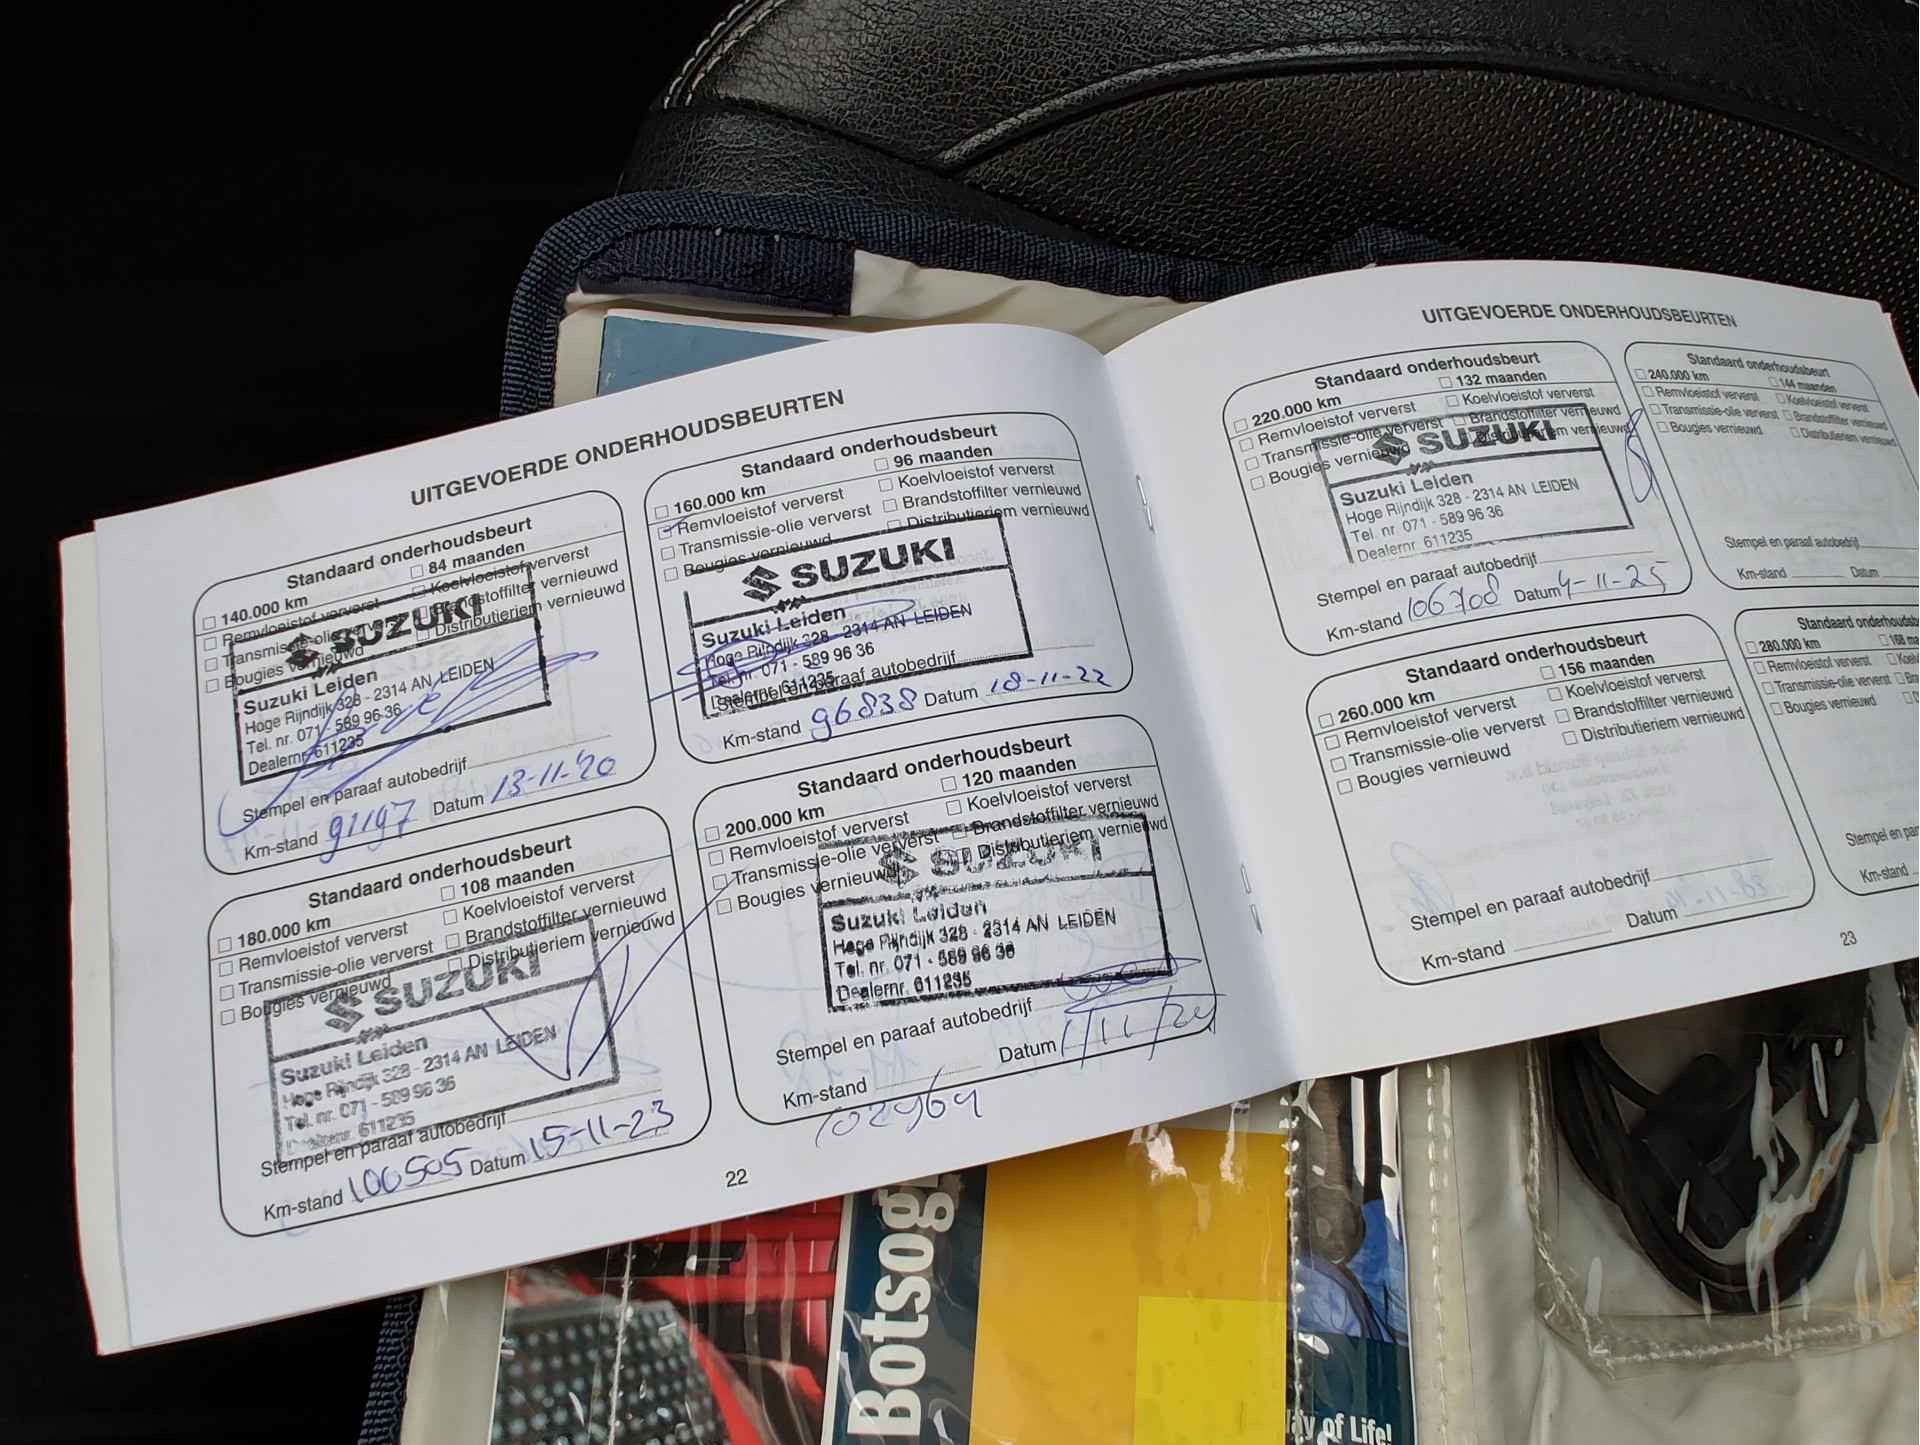 UITGEVOERDE ONDERHOUDSBEURTEN
Standaard onderhoudsbeurt
140.000 km 84 maanden
Remvloeistof ververst Koelvloeistof ververst
Transmissie-olie ververst Brandstoffilter vernieuwd
Bougies vernieuwd Distributieriem vernieuwd
SUZUKI
Suzuki Leiden
Hoge Rijndijk 328 - 2314 AN LEIDEN
Tel. nr. 071 - 589 96 36
Dealernr. 611235
Stempel en paraaf autobedrijf
Km-stand 91197 Datum 13-11-'20
Standaard onderhoudsbeurt
160.000 km 96 maanden
Remvloeistof ververst Koelvloeistof ververst
Transmissie-olie ververst Brandstoffilter vernieuwd
Bougies vernieuwd Distributieriem vernieuwd
SUZUKI
Suzuki Leiden
Hoge Rijndijk 328 - 2314 AN LEIDEN
Tel. nr. 071 - 589 96 36
Dealernr. 611235
Stempel en paraaf autobedrijf
Km-stand 96838 Datum 18-11-22
Standaard onderhoudsbeurt
180.000 km 108 maanden
Remvloeistof ververst Koelvloeistof ververst
Transmissie-olie ververst Brandstoffilter vernieuwd
Bougies vernieuwd Distributieriem vernieuwd
SUZUKI
Suzuki Leiden
Hoge Rijndijk 328 - 2314 AN LEIDEN
Tel. nr. 071 - 589 96 36
Dealernr. 611235
Stempel en paraaf autobedrijf
Km-stand 100505 Datum 15-11-23
Standaard onderhoudsbeurt
200.000 km 120 maanden
Remvloeistof ververst Koelvloeistof ververst
Transmissie-olie ververst Brandstoffilter vernieuwd
Bougies vernieuwd Distributieriem vernieuwd
SUZUKI
Suzuki Leiden
Hoge Rijndijk 328 - 2314 AN LEIDEN
Tel. nr. 071 - 589 96 36
Dealernr. 611235
Stempel en paraaf autobedrijf
Km-stand Datum 1/11/24
102969
22
UITGEVOERDE ONDERHOUDSBEURTEN
Standaard onderhoudsbeurt
220.000 km 132 maanden
Remvloeistof ververst Koelvloeistof ververst
Transmissie-olie ververst Brandstoffilter vernieuwd
Bougies vernieuwd Distributieriem vernieuwd
SUZUKI
Suzuki Leiden
Hoge Rijndijk 328 - 2314 AN LEIDEN
Tel. nr. 071 - 589 96 36
Dealernr. 611235
Stempel en paraaf autobedrijf
Km-stand 106708 Datum 4-11-25
Standaard onderhoudsbeurt
240.000 km 144 maanden
Remvloeistof ververst Koelvloeistof ververst
Transmissie-olie ververst Brandstoffilter vernieuwd
Bougies vernieuwd Distributieriem vernieuwd
Stempel en paraaf autobedrijf
Km-stand Datum
Standaard onderhoudsbeurt
260.000 km 156 maanden
Remvloeistof ververst Koelvloeistof ververst
Transmissie-olie ververst Brandstoffilter vernieuwd
Bougies vernieuwd Distributieriem vernieuwd
Stempel en paraaf autobedrijf
Km-stand Datum
Standaard onderhoudsb
280.000 km 168 ma
Remvloeistof ververst
Transmissie-olie ververst
Bougies vernieuwd
Stempel en par
Km-stand
23
Botsog
ay of Life!